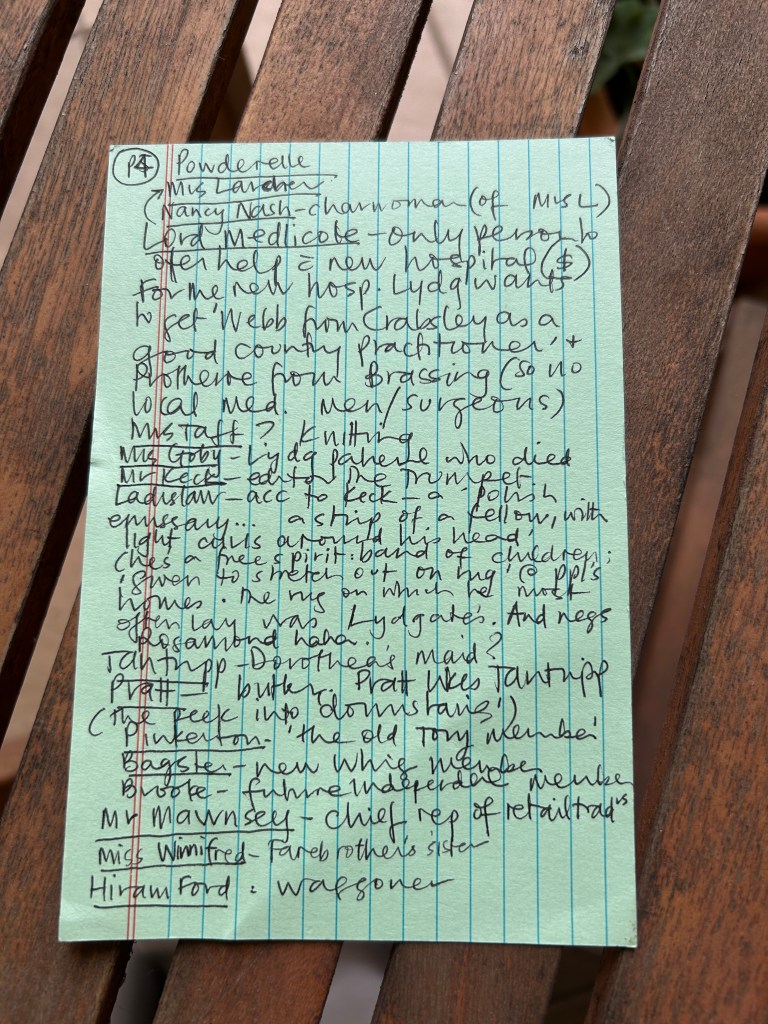 P4 Powderelle
Mrs Lardner
(Nancy Nash - charwoman (of Mrs L)
Lord Medlicote - only person to
offer help c̄ new hospital ($)
For the new hosp. Lydg wants
to get 'Webb from Crabsley as a
good country practitioner' +
Protheroe from Brassing (so no
local med. men/surgeons)
Mrs Taft ? knitting
Mrs Goby - Lydg patient who died
Mr Keck - editor The Trumpet.
Ladislaw - acc to Keck - a 'Polish
emissary... a strip of a fellow, with
light curls around his head'
(he's a free spirit: band of children;
'given to stretch out on rug' @ ppl's
homes. The rug on which he most
often lay was Lydgate's. And negs
Rosamond haha.
Tantripp - Dorothea's maid?
Pratt - " butler. Pratt likes Tantripp
(the peek into 'downstairs')
Pinkerton - 'the old Tory member'
Bagster - new Whig member
Brooke - future Independent member
Mr Mawmsey - chief rep of retail trades
Miss Winifred - Farebrother's sister
Hiram Ford : waggoner